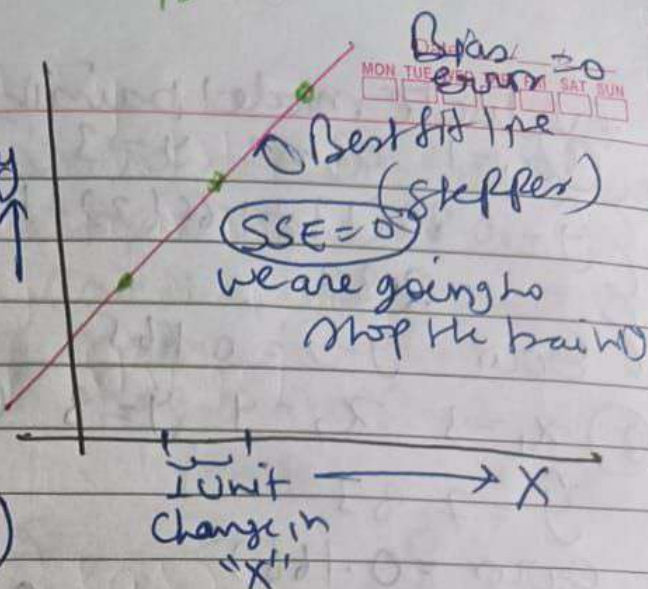 Bias = 0
error
MON TUE WED THU FRI SAT SUN
y
Best fit line
(stepper)
SSE = 0
we are going to
stop the training
1 Unit → X
Change in
"X"